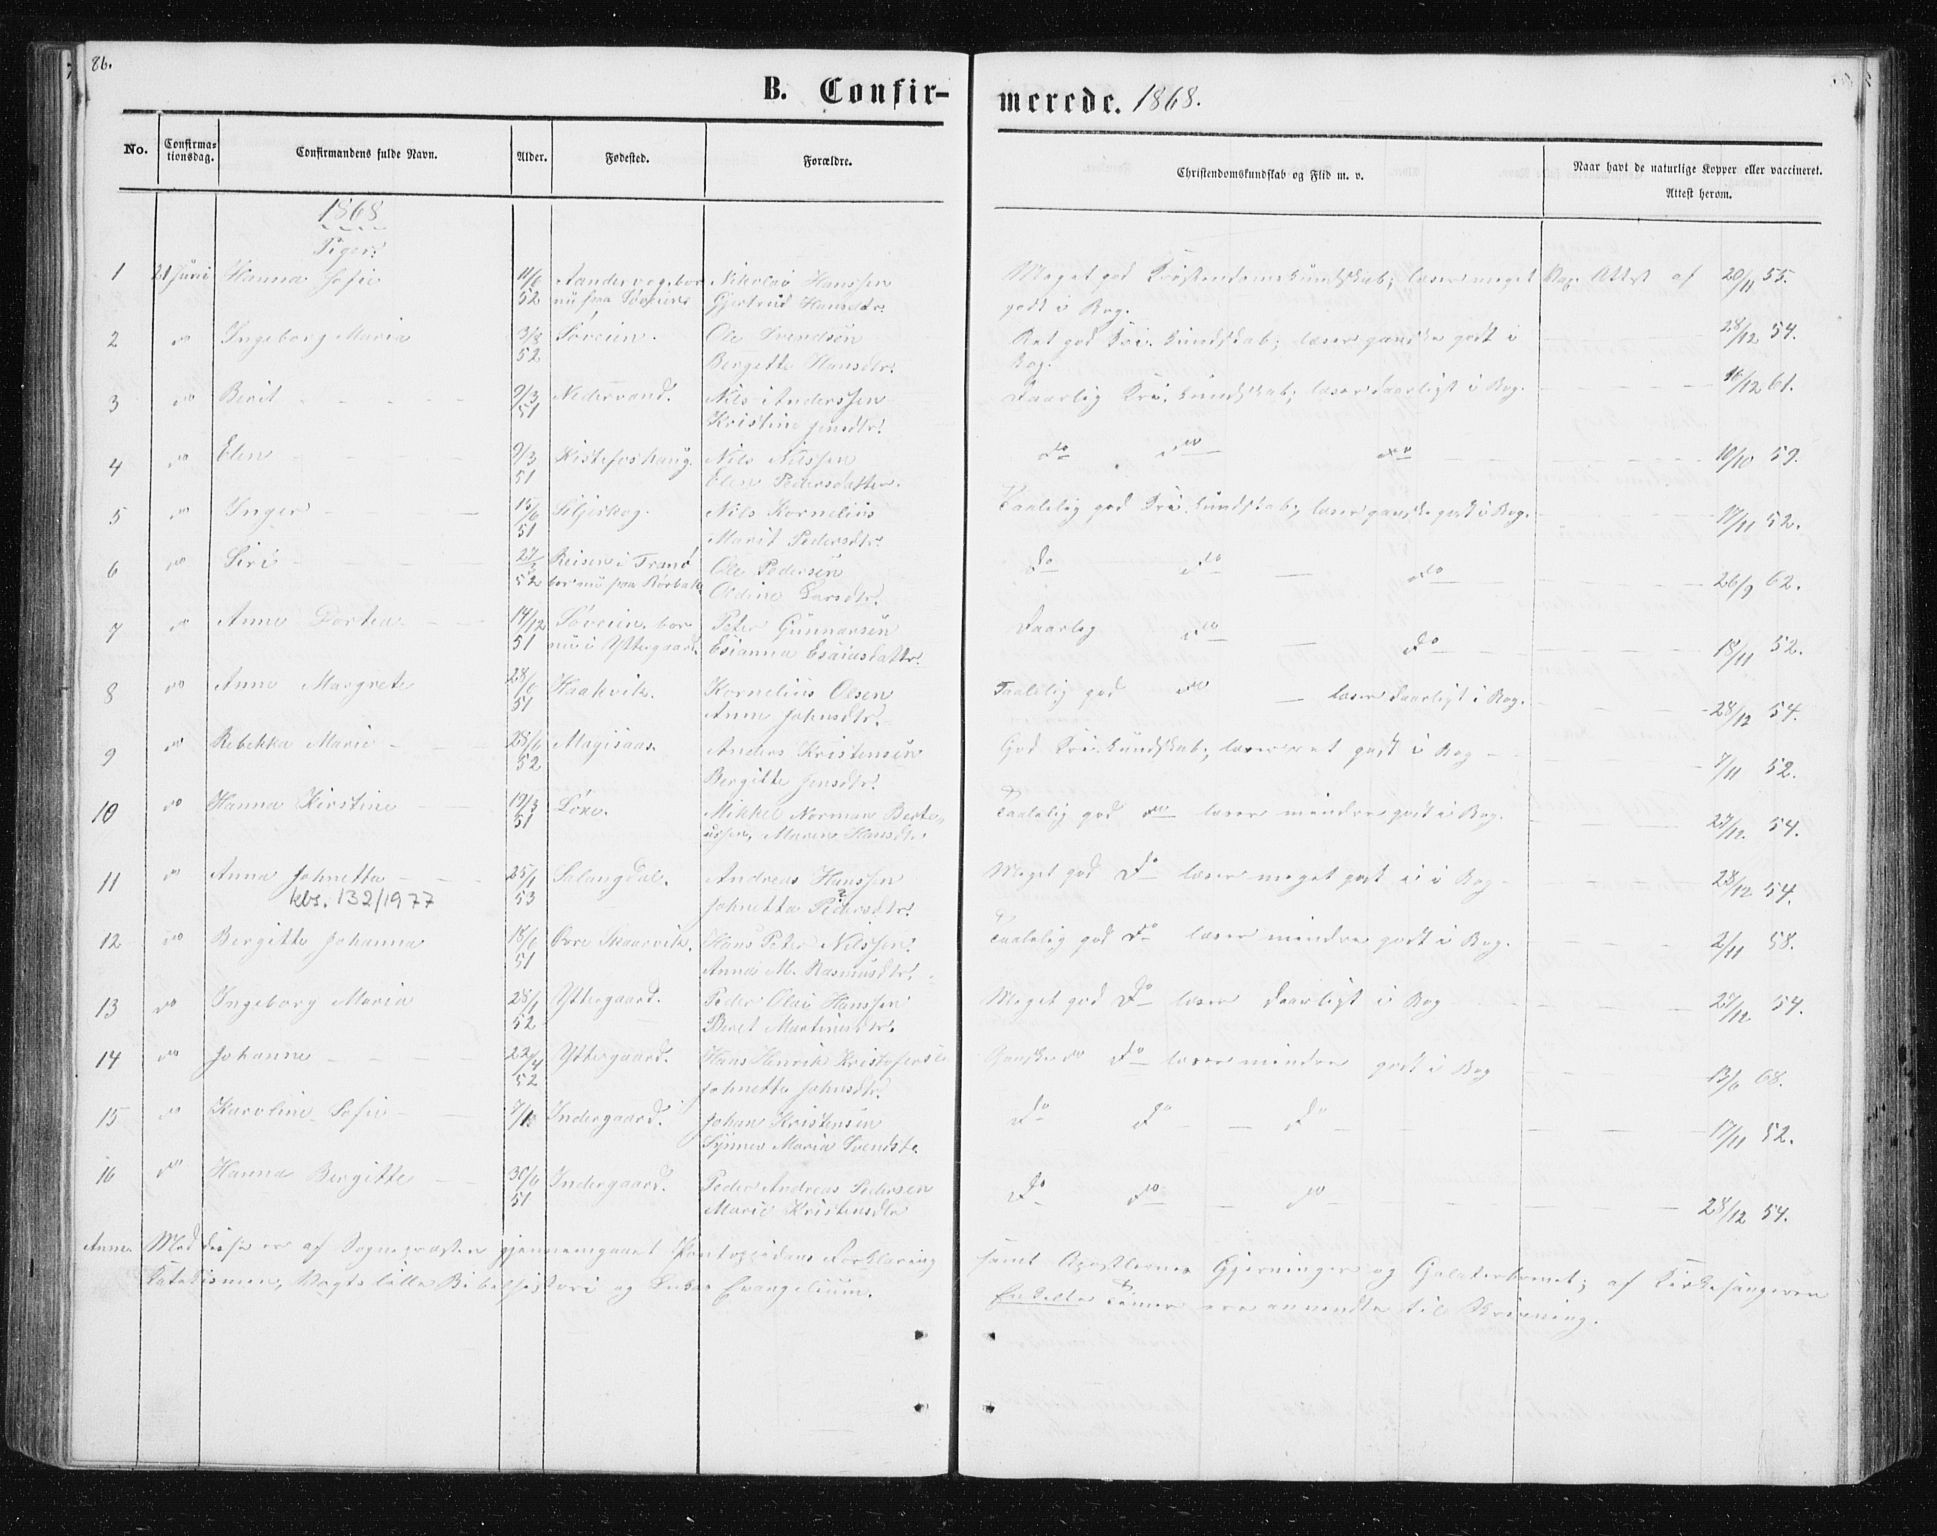 86.
B. Confir- merede. 1868.
No. Confirmationsdag. Confirmandens fulde Navn. Alder. Fødested. Forældre. Christendomskundskab og Flid m. v. Naar havt de naturlige Kopper eller vaccineret. Attest herom.
1868
Piger.
1 21 Juni Hanna Sofie 11/6 52 bor nu paa Søveien Nikolai Hanssen Gjertrud Hansdtr. Meget god Kristendomskundskab; læser meget godt i Bog. Vac. Attest af 20/11 55.
2 do Ingeborg Maria 3/8 52 Søveien. Ole Svendsen Bergitte Hansdtr. Ret god Kri. kundskab; læser ganske godt i Bog. 28/12 54.
3 do Berit 9/3 51 Nedervand. Nils Anderssen Kristine Jensdtr. Daarlig Kri. kundskab; læser daarligt i Bog. 16/12 61.
4 do Elen 9/3 51 Kistefoshaug. Nils Nilssen Elen Pedersdatter. do do do 10/10 59.
5 do Inger 15/6 51 Siljeskog. Nils Kornelius Marit Pedersdtr. Taalelig god Kri. kundskab; læser ganske godt i Bog. 17/11 52.
6 do Siri 52 Reisen i Tranø bor nu paa Rørbak Ole Pedersen Oldine Larsdtr. do do do 26/9 62.
7 do Anne Dortea 14/12 51 Søveien, bor nu i Yttergaard. Peter Gunnarsen Esianna Esaiasdattr. Daarlig do do 18/11 52.
8 do Anne Margrete 28/6 51 Haakvik. Kornelius Olsen Anne Johnsdtr. Taalelig god do læser daarligt i Bog. 28/12 54.
9 do Rebekka Marie 28/6 52 Magisaas. Anders Kristensen Bergitte Jensdtr. God Kri. kundskab; læser ret godt i Bog 7/11 52.
10 do Hanna Kirstine 19/3 51 Løxe. Mikkel Norman Berteussen, Maren Hansdtr. Taalelig god do læser mindre godt i Bog. 27/12. 54.
11 do Anna Johnetta 25/1 53 Salangdal. Andreas Hanssen Johnetta Pedersdtr. Meget god do læser meget godt i Bog 28/12 54.
kbr. 132/1977
12 do Bergitte Johanna 18/6 51 Øvre Skaarvik. Hans Peter Nilssen. Anna M. Rasmusdtr. Taalelig god do læser mindre godt i Bog. 2/11 58.
13 do Ingeborg Maria 28/1 52 Yttergaard. Peder Olai Hanssen Beret Martinusdtr. Meget god do læser daarligt i Bog 27/12 54.
14 do Johanne 22/4 52 Yttergaard. Hans Henrik Kristofersen Johnette Johnsdtr. Ganske do do læser mindre godt i Bog 13/6 68.
15 do Karoline Sofie Indergaard. Johan Kristensen Synnev Maria Svendsdtr do do do 17/11 52.
16 do Hanna Bergitte 30/6 51 Indergaard. Peder Andreas Pedersen Marie Kristensdtr do do do 28/12 54.
Anm. Med disse er af Sognepræsten gjennemgaaet Pontoppidans Forklaring samt Apostlernes Gjerninger og Galaterbrevet; af Kirkesangeren
Katekismen, Vogts lille Bibelhistorie og Lukas Evangelium. Enkelte Timer ere anvendte til Skrivning.